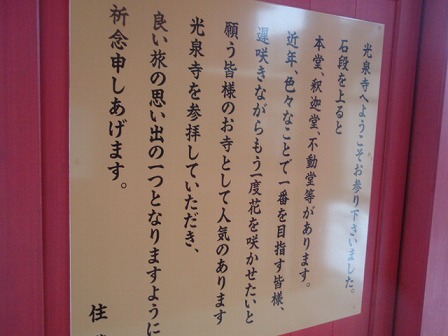 光泉寺へようこそお参り下さいました。
石段を上ると
本堂、釈迦堂、不動堂等があります。
近年、色々なことで一番を目指す皆様、
遅咲きながらもう一度花を咲かせたいと
願う皆様のお寺として人気のあります
光泉寺を参拝していただき、
良い旅の思い出の一つとなりますように
祈念申しあげます。
住